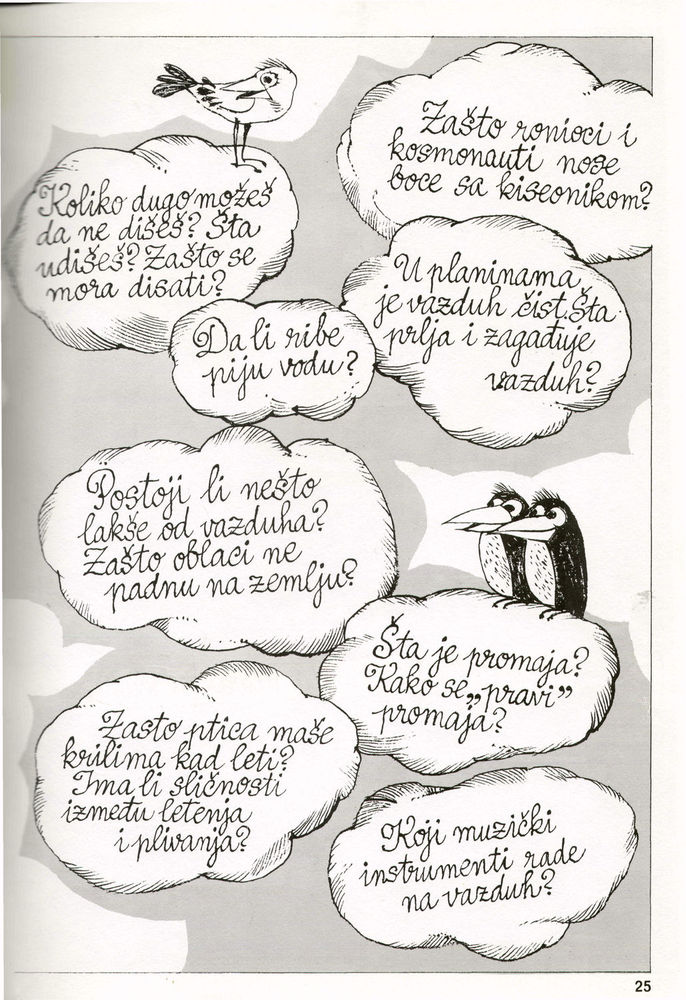 Koliko dugo možeš
da ne dišeš? Šta
udišeš? Zašto se
mora disati?
Zašto ronioci i
kosmonauti nose
boce sa kiseonikom?
U planinama
je vazduh čist. Šta
prlja i zagađuje
vazduh?
Da li ribe
piju vodu?
Postoji li nešto
lakše od vazduha?
Zašto oblaci ne
padnu na zemlju?
Šta je promaja?
Kako se „pravi”
promaja?
Zašto ptica maše
krilima kad leti?
Ima li sličnosti
između letenja
i plivanja?
Koji muzički
instrumenti rade
na vazduh?
25